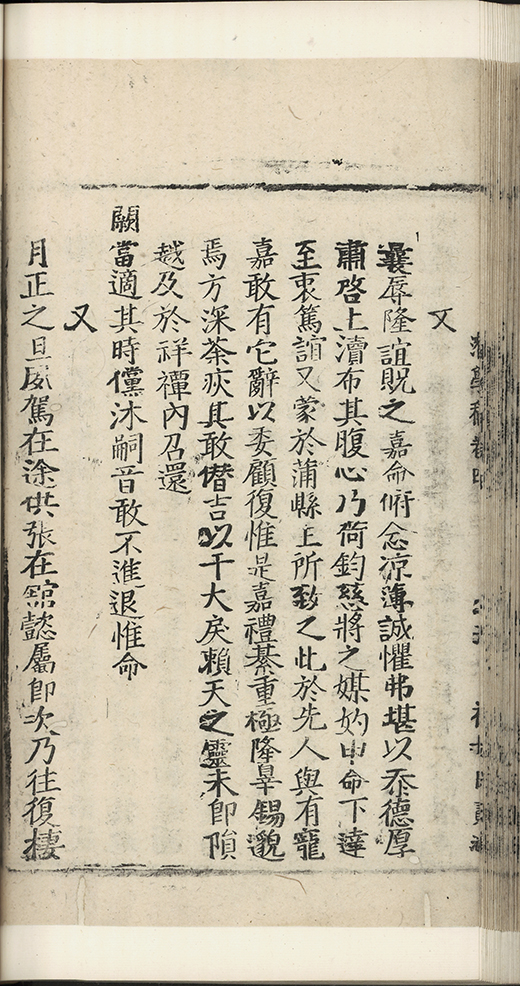 又
曩辱隆誼貺之嘉命俯念凉薄誠懼弗堪以忝德厚
肅啓上瀆布其腹心乃荷鈞慈將之媒妁申命下達
至衷篤誼又蒙於蒲縣主所致之此於先人與有寵
嘉敢有它辭以委顧復惟是嘉禮綦重極隆辠錫邈
焉方深荼疚其敢僭吉以干大戾賴天之靈未即隕
越及於祥禫內召還
闕當適其時儻沐嗣音敢不進退惟命
又
月正之旦威駕在途供張在舘懿屬即次乃往復棲